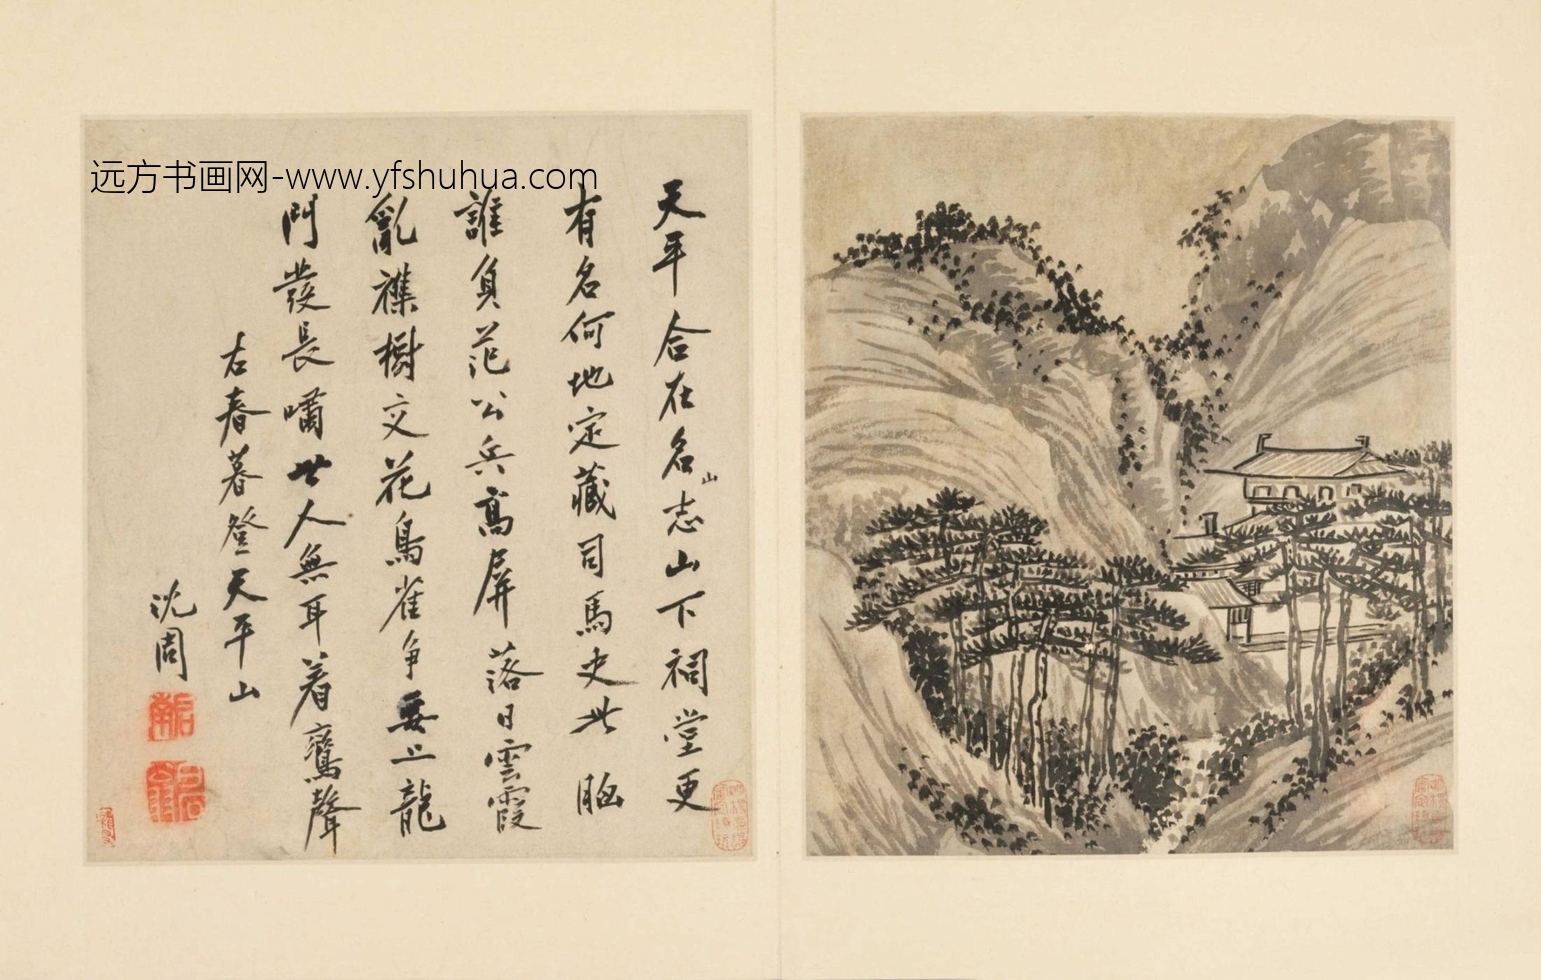 远方书画网-www.yfshuhua.com
天平合在名山志山下祠堂更
有名何地定藏司馬史此胸
誰負范公兵高屏落日雲霞
亂襍樹交花鳥雀争要上龍
門發長嘯世人無耳着鸞聲
右春暮登天平山
沈周
啟南